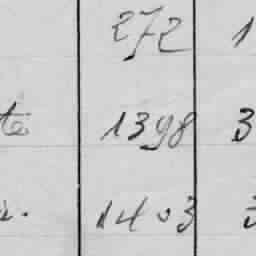 272 1
1398 3
1403 3